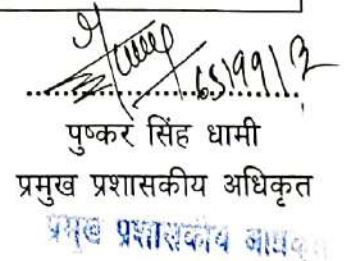 पुष्कर सिंह धामी
प्रमुख प्रशासकीय अधिकृत
प्रमुख प्रशासकीय